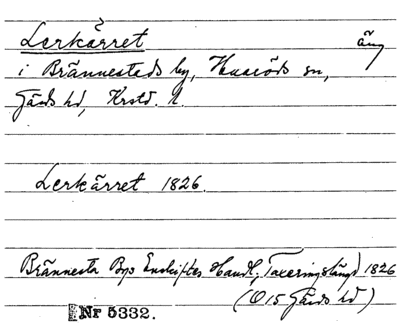 Lerkärret äng
i Brännestads by, Huaröds sn,
Gärds hd, Krstd. l.
Lerkärret 1826.
Brännesta Bys Enskiftes Handl, Taxeringslängd 1826
(O15 Gärds hd)
Nr 5332.